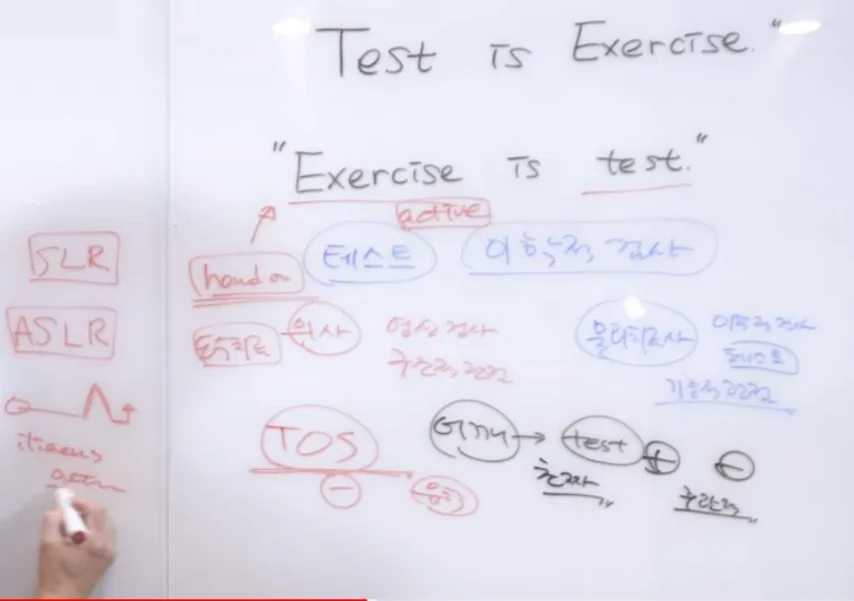 Test is Exercise."
"Exercise is test."
active
SLR
hand on
테스트
이학적 검사
ASLR
도수치료
의사
영상 검사
구조적 관점
물리치료사
이학적 검사
테스트
기능적 관점
TOS
어깨 → test + -
환자
주관적
-
iliacus